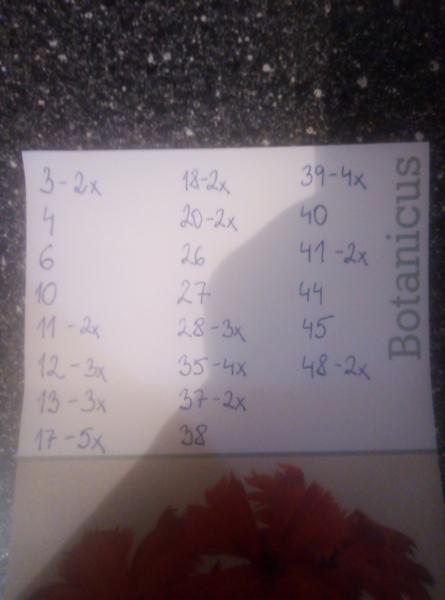 3-2x
4
6
10
11-2x
12-3x
13-3x
17-5x
18-2x
20-2x
26
27
28-3x
35-4x
37-2x
38
39-4x
40
41-2x
44
45
48-2x
Botanicus